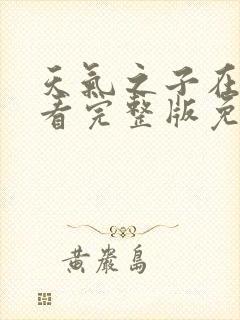 天氣之子在
看完整版免
黃巖島